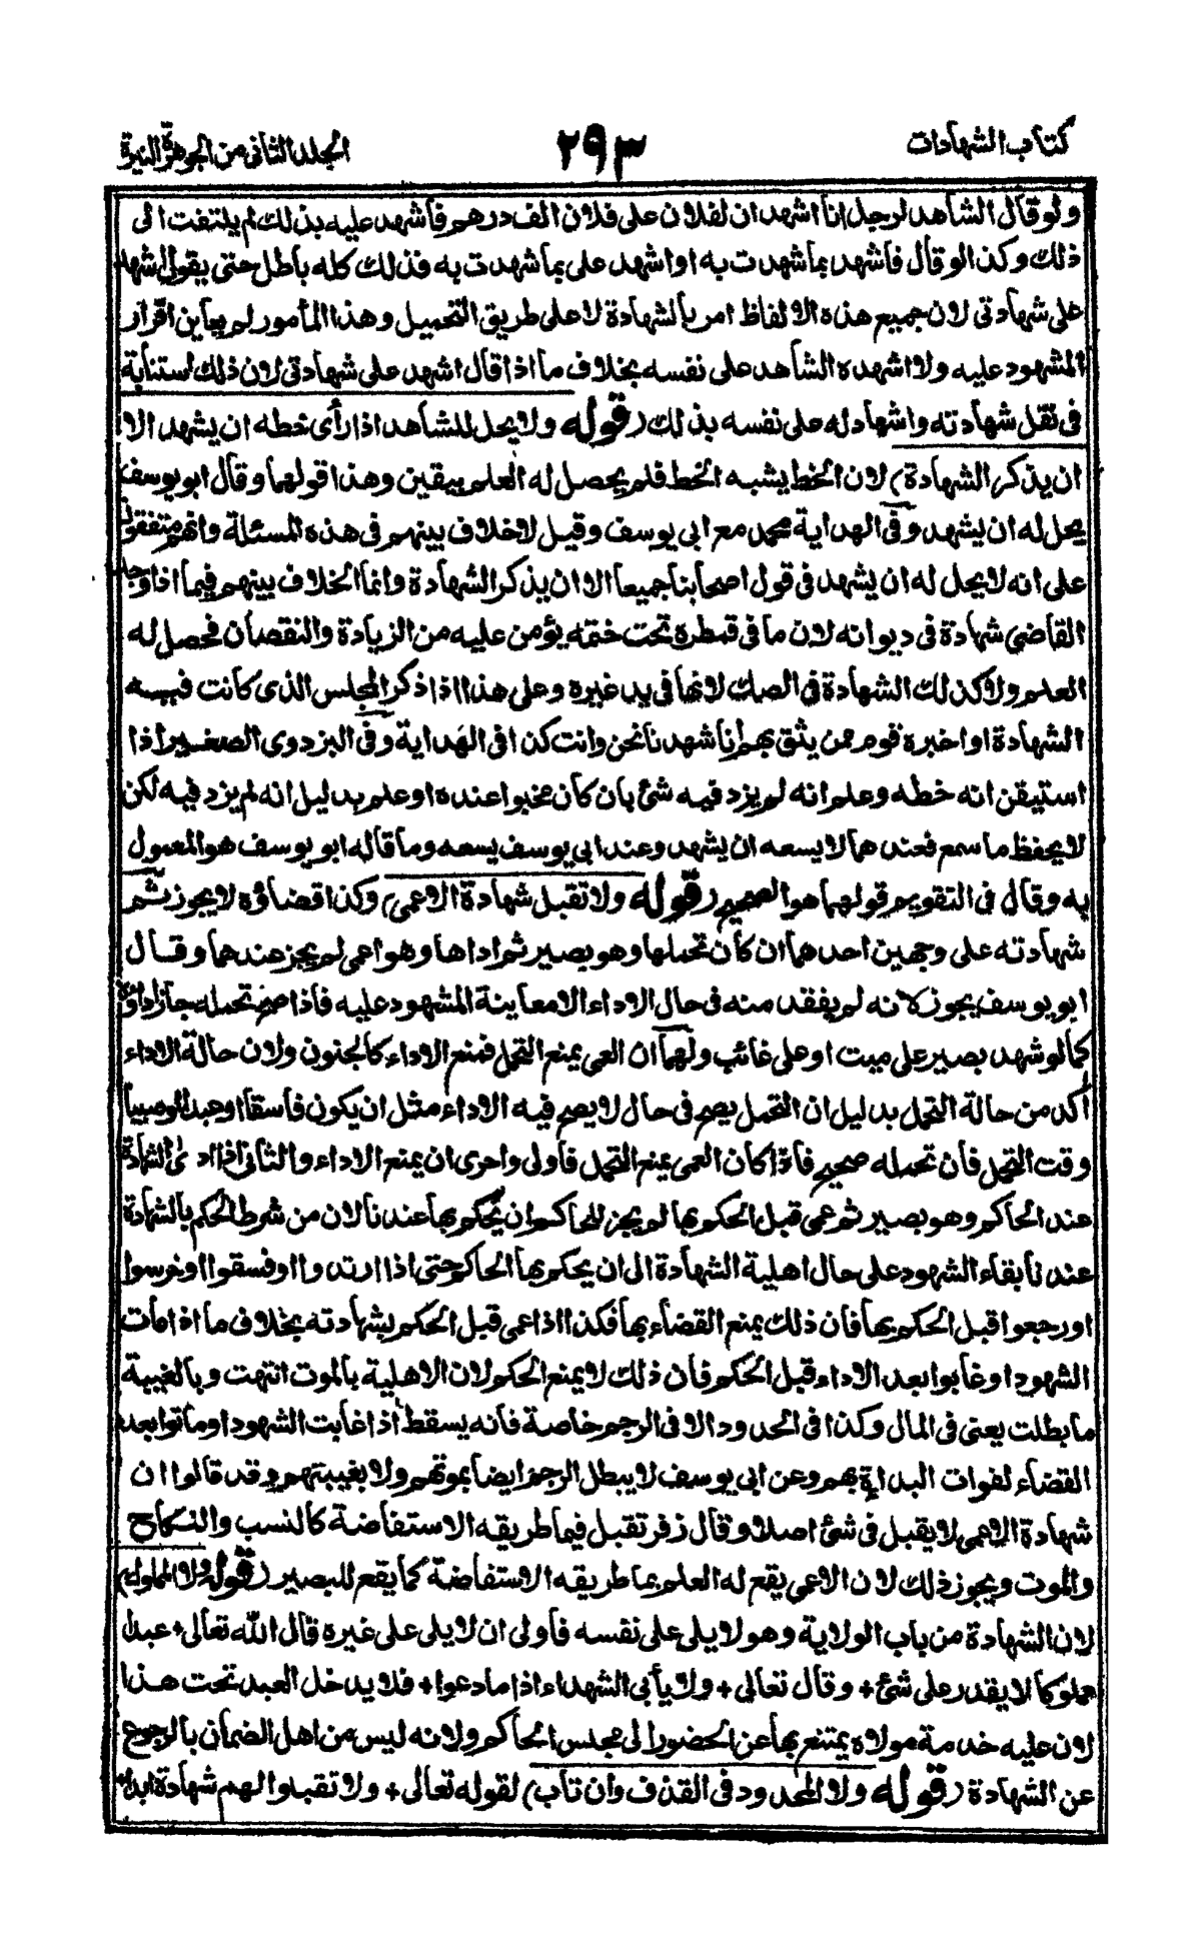 كتاب الشهادات
٢٩٣
الجلد الثانى من الجوهرة النيرة
ولو قال الشاهد لرجل انا اشهد ان لفلان على فلان الف درهم فاشهد عليه بذلك لم يلتفت الى
ذلك وكذا لو قال فاشهد بما شهدت به او اشهد على بما شهدت به فذلك كله باطل حتى يقول اشهد
على شهادتى لان جميع هذه الالفاظ امر بالشهادة لا على طريق التحميل وهذا المأمور لم يعاين اقرار
المشهود عليه ولا اشهده الشاهد على نفسه بخلاف ما اذا قال اشهد على شهادتى لان ذلك استنابة
فى نقل شهادته واشهاد له على نفسه بذلك (قوله ولا يحل للشاهد اذا رأى خطه ان يشهد الا
ان يذكر الشهادة) لان الخط يشبه الخط فلم يحصل له العلم بيقين وهذا قولهما وقال ابو يوسف
يحل له ان يشهد وفى الهداية محمد مع ابى يوسف وقيل لا خلاف بينهم فى هذه المسئلة وانهم متفقون
على انه لا يحل له ان يشهد فى قول اصحابنا جميعا الا ان يذكر الشهادة وانما الخلاف بينهم فيما اذا وجد
القاضى شهادة فى ديوانه لان ما فى قمطره تحت ختمه يؤمن عليه من الزيادة والنقصان فحصل له
العلم ولا كذلك الشهادة فى الصك لانها فى يد غيره وعلى هذا اذا ذكر المجلس الذى كانت فيه
الشهادة او اخبره قوم ممن يثق بهم انا شهدنا نحن وانت كذا فى الهداية وفى البزدوى الصغير اذا
استيقن انه خطه وعلم انه لم يزد فيه شئ بان كان مخبوا عنده او علم بدليل انه لم يزد فيه لكن
لا يحفظ ما سمع فعندهما لا يسعه ان يشهد وعند ابى يوسف يسعه وما قاله ابو يوسف هو المعمول
به وقال فى التقويم قولهما هو الصحيح (قوله ولا تقبل شهادة الاعمى) وكذا قضاؤه لا يجوز ثم
شهادته على وجهين احدهما ان كان تحملها وهو بصير ثم اداها وهو اعمى لم يجز عندهما وقال
ابو يوسف يجوز لانه لم يفقد منه فى حال الاداء الا معاينة المشهود عليه فاذا صح تحمله جاز اداؤه
كما لو شهد بصير على ميت او على غائب ولهما ان العمى يمنع التحمل فمنع الاداء كالجنون ولان حالة الاداء
أكد من حالة التحمل بدليل ان التحمل يصح فى حال لا يصح فيه الاداء مثل ان يكون فاسقا او عبدا او صبيا
وقت التحمل فان تحمله صحيح فاذا كان العمى يمنع التحمل فاولى واحرى ان يمنع الاداء والثانى اذا ادى الشهادة
عند الحاكم وهو بصير ثم عمى قبل الحكم بها لم يجز للحاكم ان يحكم بها عندنا لان من شرط الحكم بالشهادة
عندنا بقاء الشهود على حال اهلية الشهادة الى ان يحكم بها الحاكم حتى اذا ارتدوا او فسقوا او خرسوا
او رجعوا قبل الحكم بها فان ذلك يمنع القضاء بها فكذا اذا عمى قبل الحكم بشهادته بخلاف ما اذا مات
الشهود او غابوا بعد الاداء قبل الحكم فان ذلك لا يمنع الحكم لان الاهلية بالموت انتهت وبالغيبة
ما بطلت يعنى فى المال وكذا فى الحدود الا فى الرجم خاصة فانه يسقط اذا غابت الشهود او ماتوا بعد
القضاء لفوات البداءة بهم وعن ابى يوسف لا يبطل الرجم ايضا بموتهم ولا بغيبتهم وقد قالوا ان
شهادة الاعمى لا يقبل فى شئ اصلا وقال زفر تقبل فيما طريقه الاستفاضة كالنسب والنكاح
والموت ويجوز ذلك لان الاعمى يقع له العلم بما طريقه الاستفاضة كما يقع للبصير (قوله ولا المملوك)
لان الشهادة من باب الولاية وهو لا يلى على نفسه فاولى ان لا يلى على غيره قال الله تعالى + عبدا
مملوكا لا يقدر على شئ + وقال تعالى + ولا يأبى الشهداء اذا ما دعوا + فلا يدخل العبد تحت هذا
لان عليه خدمة مولاه يمتنع بها عن الحضور الى مجلس الحاكم ولانه ليس من اهل الضمان بالرجوع
عن الشهادة (قوله ولا المحدود فى القذف وان تاب) لقوله تعالى + ولا تقبلوا لهم شهادة ابدا +